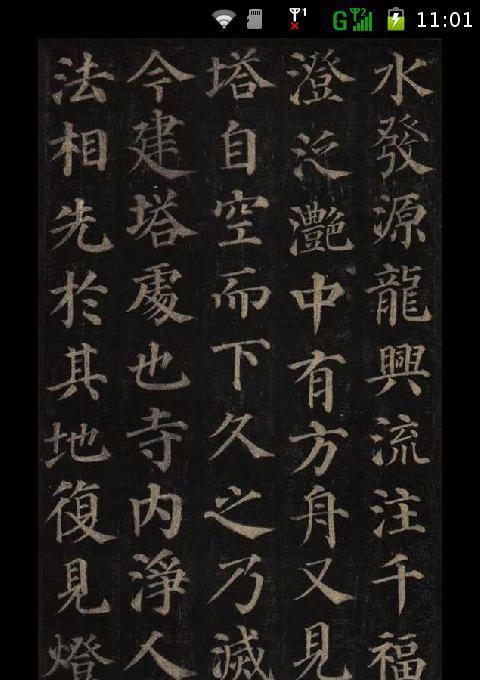 11:01
水發源龍興流注千福
澄泛灩中有方舟又見
塔自空而下久之乃滅
今建塔處也寺内淨人
法相先於其地復見燈